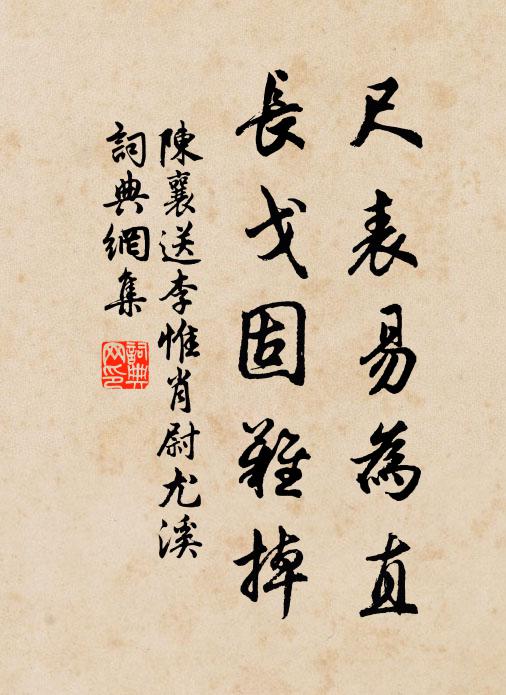 尺表易為直
長戈固難掉
陳襄送李惟肖尉尤溪
詞典網集
詞典
网印